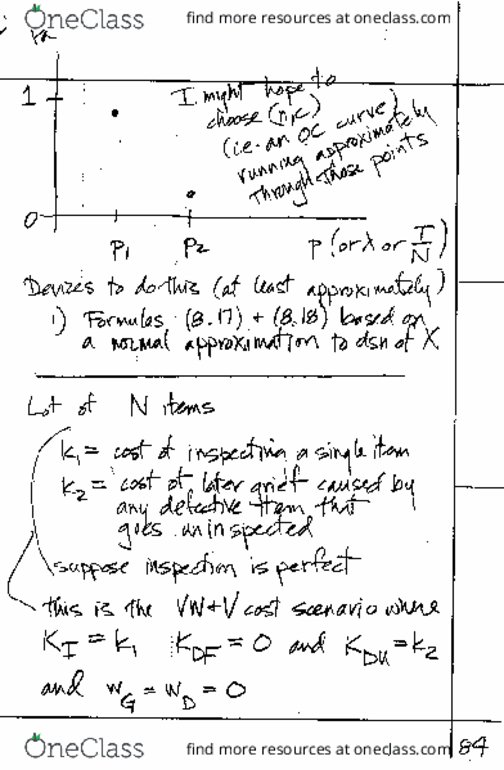 OneClass find more resources at oneclass.com
Pa
1
I might hope to
choose (n,c)
(i.e. an OC curve)
running approximately
through those points
0
P1 P2 p (or λ or T/N)
Devices to do this (at least approximately)
1) Formulas (8.17) + (8.18) based on
a normal approximation to dsn of X
Lot of N items
k1 = cost of inspecting a single item
k2 = cost of later grief caused by
any defective item that
goes uninspected
suppose inspection is perfect
this is the VW+V cost scenario where
KI = k1 KDF = 0 and KDU = k2
and wG = wD = 0
OneClass find more resources at oneclass.com 84